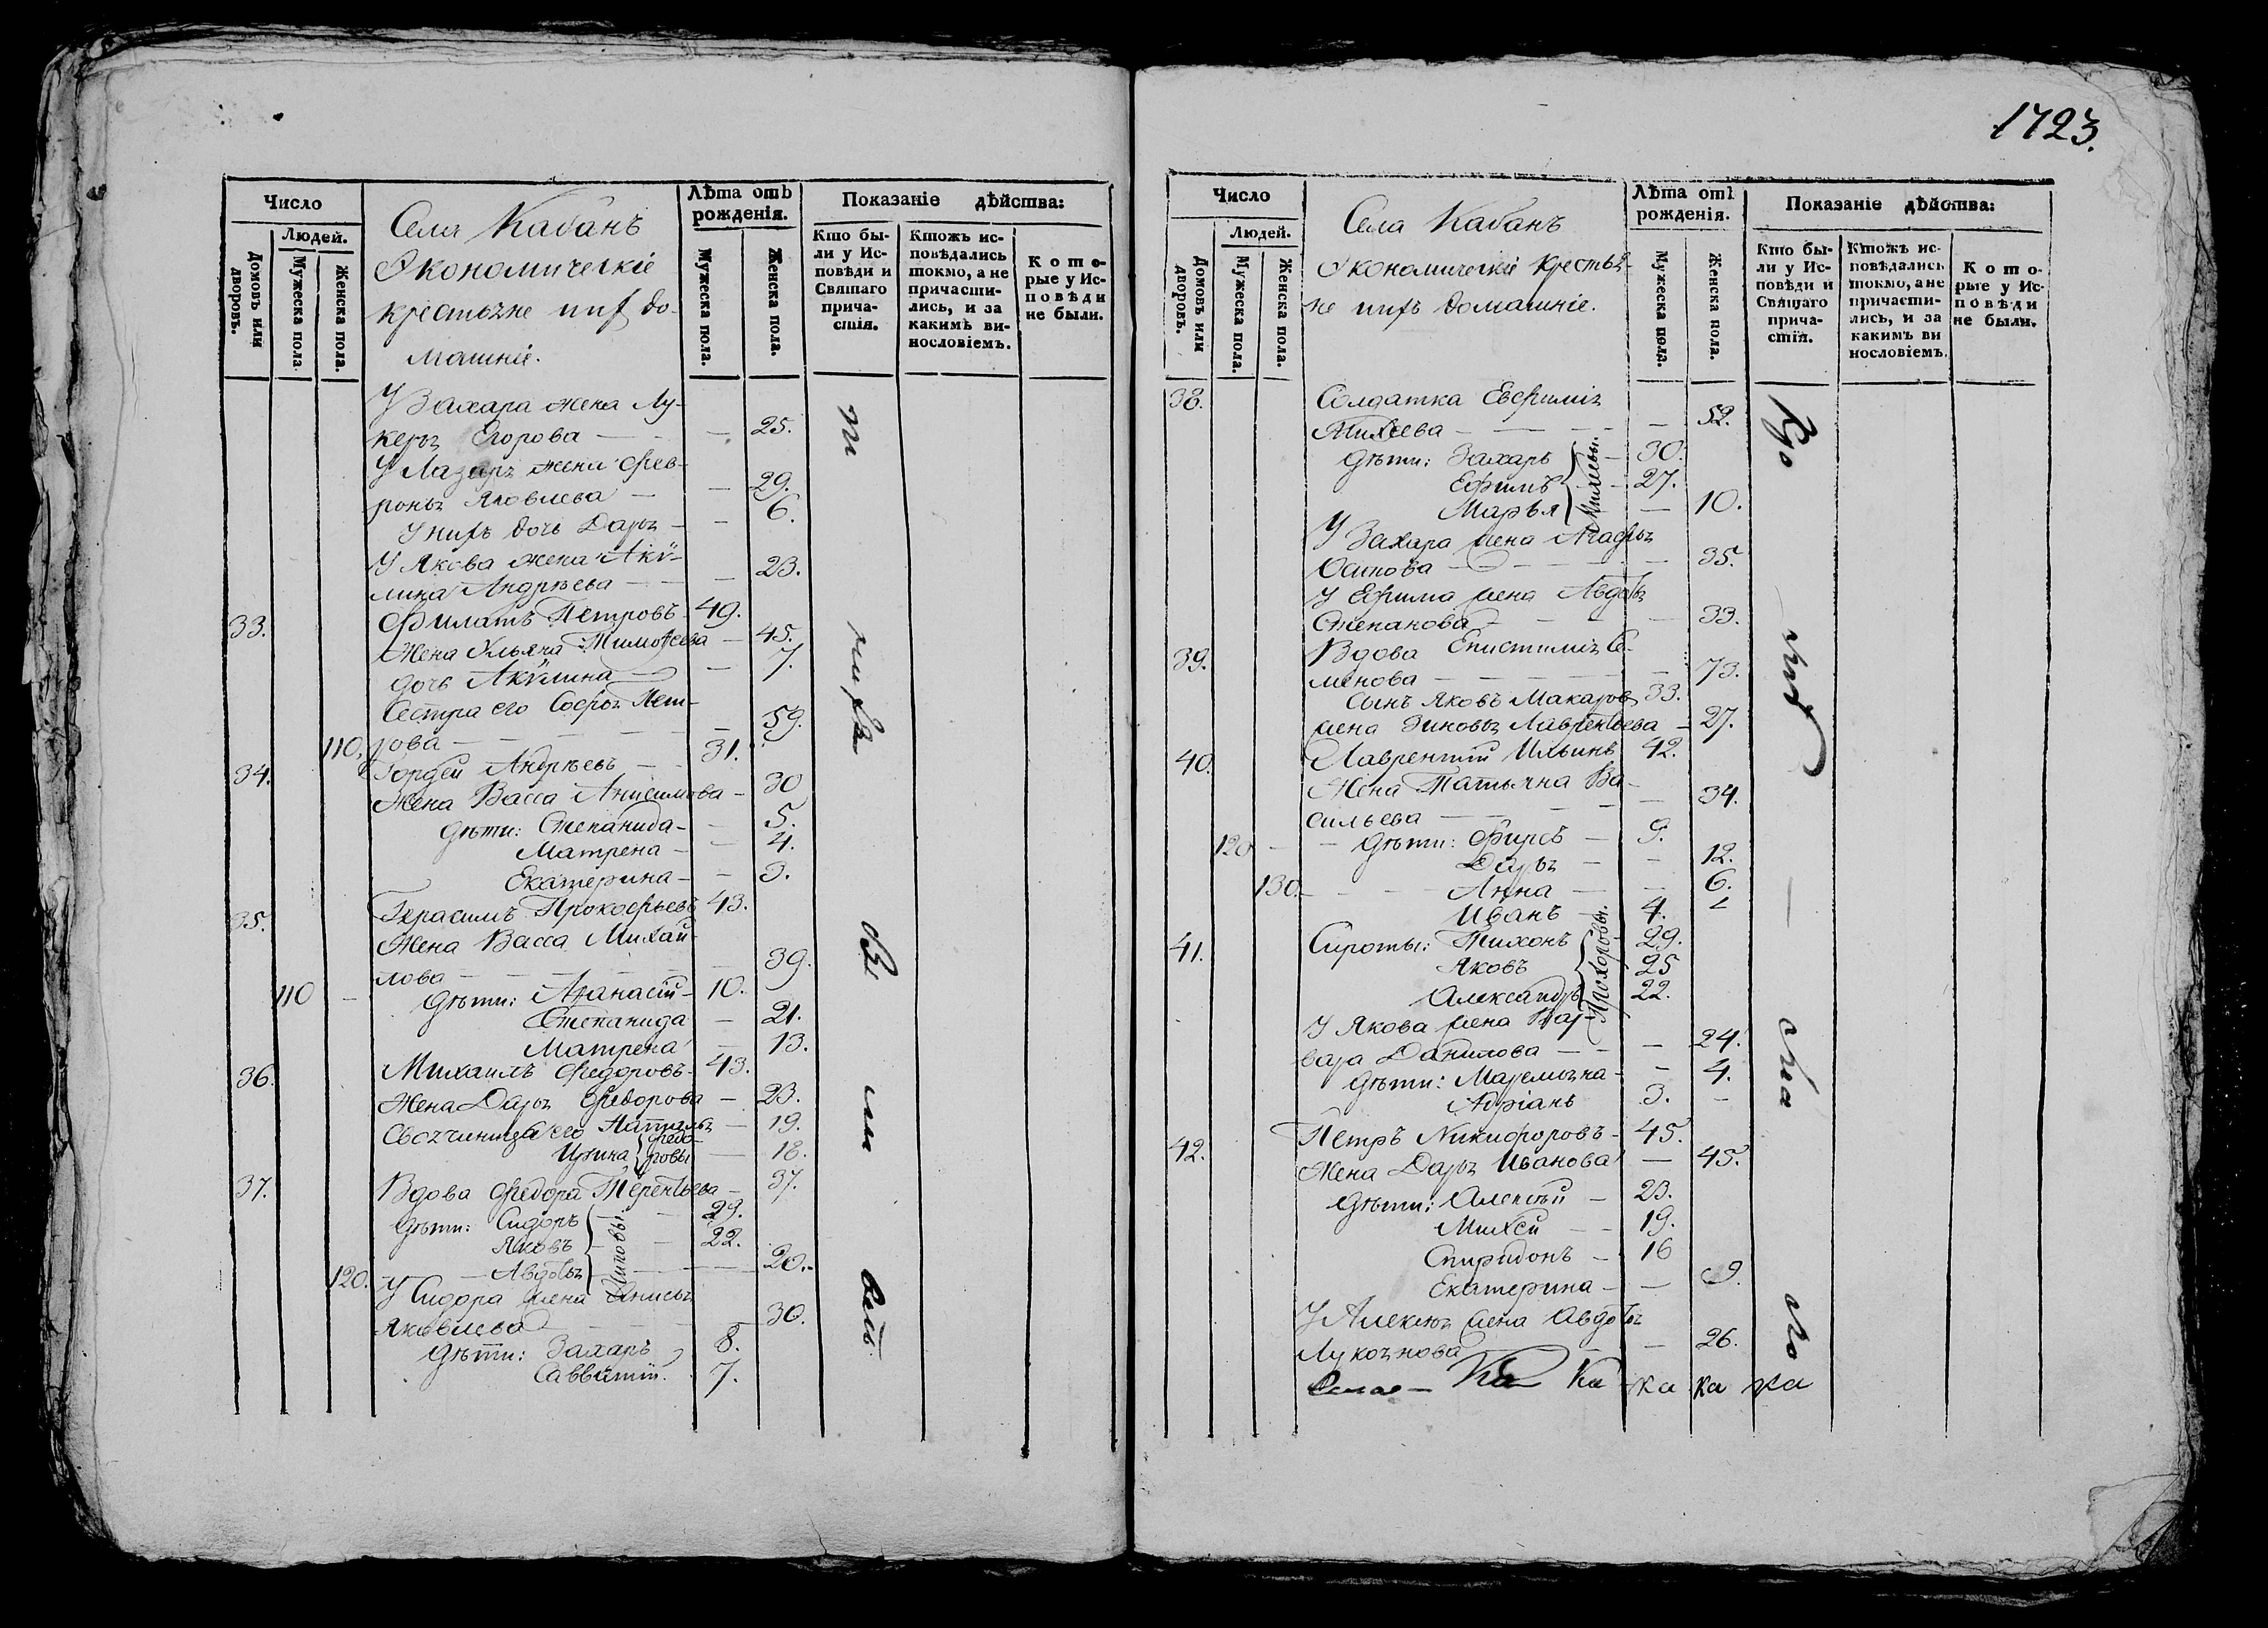 1723.
Число
Людей.
Домовъ или дворовъ.
Мужеска пола
Женска пола.
Села Кабанъ
Экономическіе
крестьяне и ихъ до-
машніе.
Лѣта отъ
рожденія.
Мужеска пола.
Женска пола.
Показаніе дѣйства:
Кто бы-
ли у Ис-
повѣди и
Святаго
прича-
стія.
Ктожъ ис-
повѣдались
токмо, а не
причасти-
лись, и за
какимъ ви-
нословіемъ.
Кото-
рые у Ис-
повѣди
не были.
У Захара жена Лу-
керья Егорова — — 25.
У Лазаря жена Фев-
ронья Яковлева — — 29.
У нихъ дочь Дарья — — 6.
У Якова жена Аку-
лина Андрѣева — — 23.
33. Филатъ Петровъ 49.
Жена Ульяна Тимофеева — 45.
дочь Акулина — 7.
Сестра его Софья Пет-
110. рова — — 59.
34. Гордей Андрѣевъ — 31.
Жена Васса Анисимова — 30
Дѣти: Степанида — 5.
Матрена — 4.
Екатерина — 3.
35. Герасимъ Прокофьевъ 43.
Жена Васса Михай-
лова — 39.
110 — Дѣти: Афанасій — 10.
Степанида — 21.
Матрена — 13.
36. Михаилъ Федоровъ 43.
Жена Дарья Федорова — 23.
Своячиницы его Наталья — 19.
Ирина — 18.
Федо-
ровы
37. Вдова Федора Терентьева — 37.
Дѣти: Сидоръ — 29.
Яковъ — 22.
120. — Авдотья — 20.
У Сидора жена Анисья
Яковлева — 30.
Дѣти: Захаръ 8.
Савватій. 7.
Число
Людей.
Домовъ или дворовъ.
Мужеска пола.
Женска пола.
Села Кабанъ
Экономическіе крестья-
не и ихъ домашніе.
Лѣта отъ
рожденія.
Мужеска пола.
Женска пола.
Показаніе дѣйства:
Кто бы-
ли у Ис-
повѣди и
Святаго
прича-
стія.
Ктожъ ис-
повѣдались
токмо, а не
причасти-
лись, и за
какимъ ви
нословіемъ.
Кото-
рые у Ис-
повѣди
не были.
38. Солдатка Евфимія
Михеева — — 52.
Дѣти: Захаръ — 30.
Ефимъ — 27.
Марья — 10.
У Захара жена Агафья
Осипова — — 35.
У Ефима жена Авдотья
Степанова — — 33.
39. Вдова Епистимія Се-
менова — — 73.
Сынъ Яковъ Макаровъ 33.
жена Зиновья Лаврентьева — 27.
40. Лаврентій Ильинъ 42.
Жена Татьяна Ва-
сильева — — 34.
120 — — Дѣти: Фирсъ — 9.
Дарья — — 12.
130. — — Анна — — 6.
Иванъ 4.
41. Сироты: Тихонъ 29.
Яковъ 25
Александръ 22.
Прохоровы.
У Якова жена Вар-
вара Данилова — — 24.
Дѣти: Маремьяна — 4.
Адріанъ 3. —
42. Петръ Никифоровъ — 45.
Жена Дарья Иванова — 45.
Дѣти: Алексѣй — 23.
Михей — 19.
Спиридонъ — 16
Екатерина — — 9.
У Алексѣя жена Авдотья
Лукоянова — — 26.